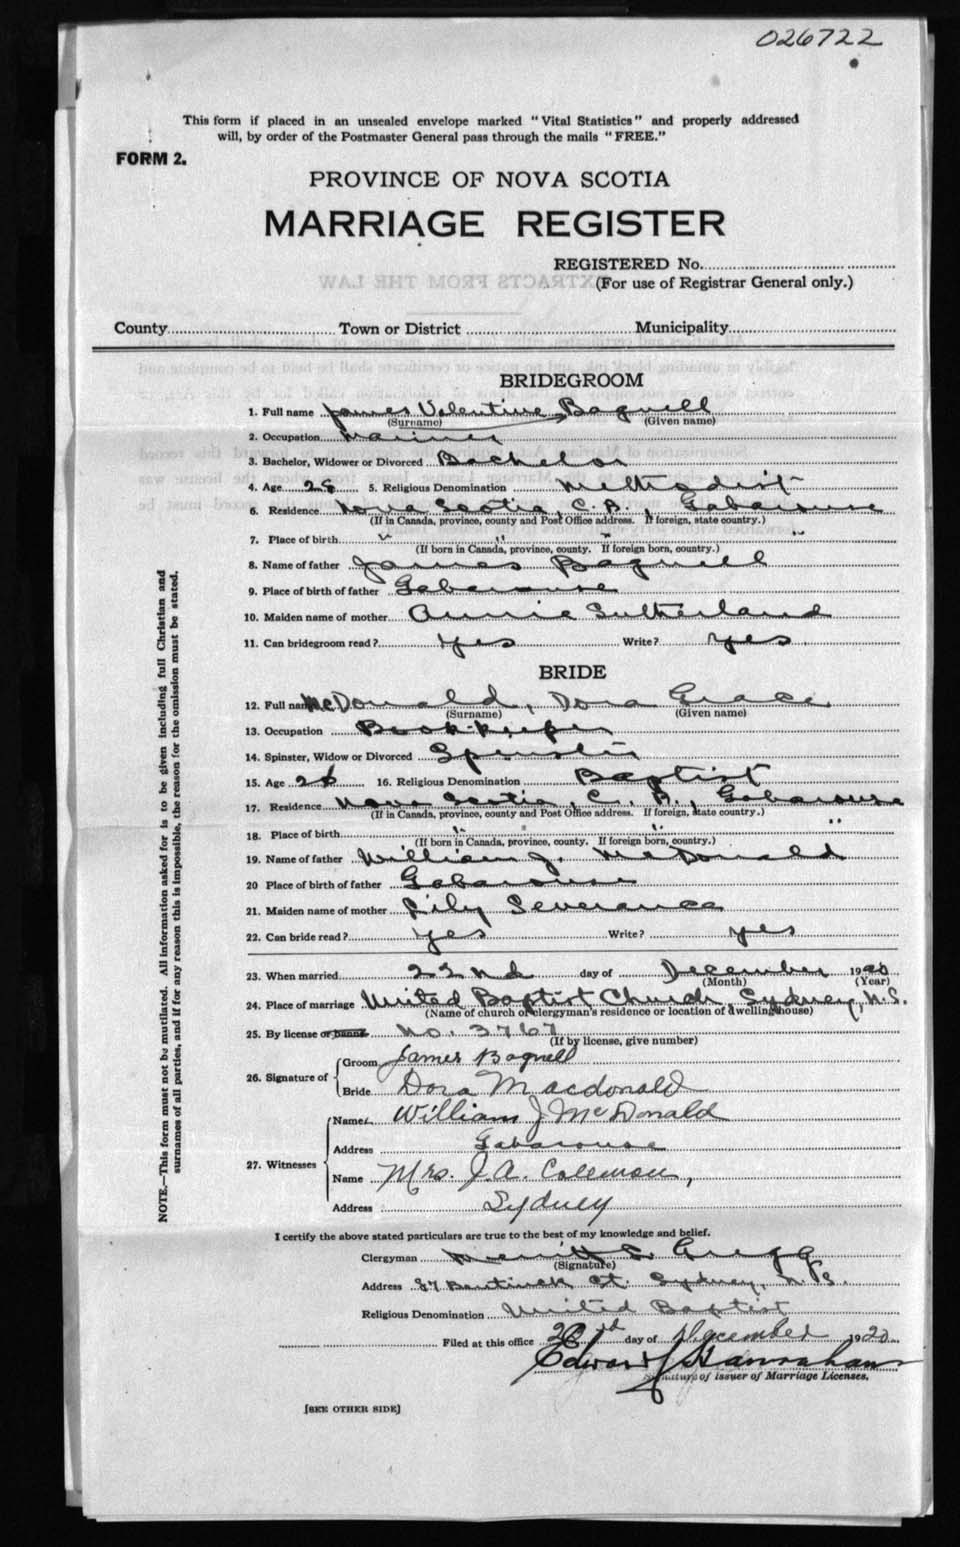 026722
This form if placed in an unsealed envelope marked "Vital Statistics" and properly addressed
will, by order of the Postmaster General pass through the mails "FREE."
FORM 2.
PROVINCE OF NOVA SCOTIA
MARRIAGE REGISTER
REGISTERED No.
(For use of Registrar General only.)
County Town or District Municipality
BRIDEGROOM
1. Full name James Valentine Bagnell
(Surname) (Given name)
2. Occupation Mariner
3. Bachelor, Widower or Divorced Bachelor
4. Age 28 5. Religious Denomination Methodist
6. Residence Nova Scotia, C.B., Gabarouse
(If in Canada, province, county and Post Office address. If foreign, state country.)
7. Place of birth " " " "
(If born in Canada, province, county. If foreign born, country.)
8. Name of father James Bagnell
9. Place of birth of father Gabarouse
10. Maiden name of mother Annie Sutherland
11. Can bridegroom read? yes Write? yes
BRIDE
12. Full name McDonald, Dora Grace
(Surname) (Given name)
13. Occupation Book-keeper
14. Spinster, Widow or Divorced Spinster
15. Age 16. Religious Denomination Baptist
17. Residence Nova Scotia, C. B., Gabarouse
(If in Canada, province, county and Post Office address. If foreign, state country.)
18. Place of birth " " "
(If born in Canada, province, county. If foreign born, country.)
19. Name of father William J. McDonald
20 Place of birth of father Gabarouse
21. Maiden name of mother Lily Severance
22. Can bride read? yes Write? yes
23. When married 22nd day of December 1920
(Month) (Year)
24. Place of marriage United Baptist Church, Sydney, N.S.
(Name of church or clergyman's residence or location of dwelling house)
25. By license or banns No. 3767
(If by license, give number)
26. Signature of Groom James Bagnell
Bride Dora Macdonald
27. Witnesses Name William J McDonald
Address Gabarouse
Name Mrs. J.A. Coleman,
Address Sydney
I certify the above stated particulars are true to the best of my knowledge and belief.
Clergyman Merritt L. Gregg
(Signature)
Address 87 Bentinck St. Sydney, N.S.
Religious Denomination United Baptist
Filed at this office day of December 1920
Edward J Hanrahan
Signature of issuer of Marriage Licenses.
[SEE OTHER SIDE]
NOTE.—This form must not be mutilated. All information asked for is to be given including full Christian and
surnames of all parties, and if for any reason this is impossible, the reason for the omission must be stated.